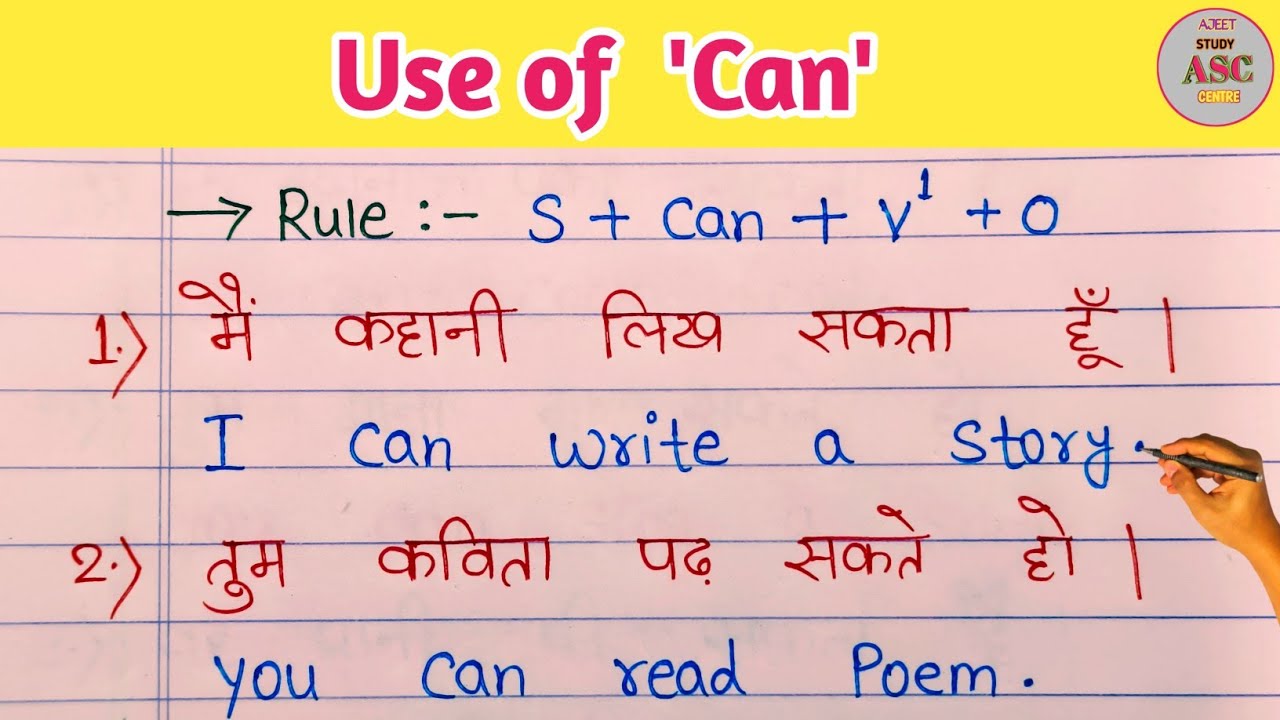 Use of 'Can'
AJEET
STUDY
ASC
CENTRE
→ Rule :- S + Can + V¹ + O
1.) मैं कहानी लिख सकता हूँ |
I can write a story.
2.) तुम कविता पढ़ सकते हो |
you can read Poem.